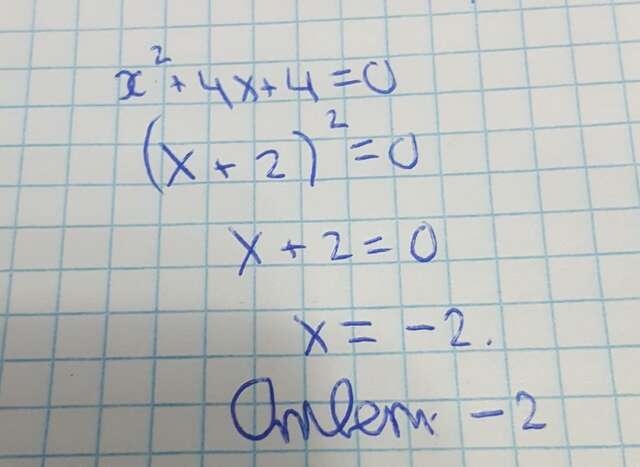 x² + 4x + 4 = 0
(x + 2)² = 0
x + 2 = 0
x = -2.
Ответ: -2